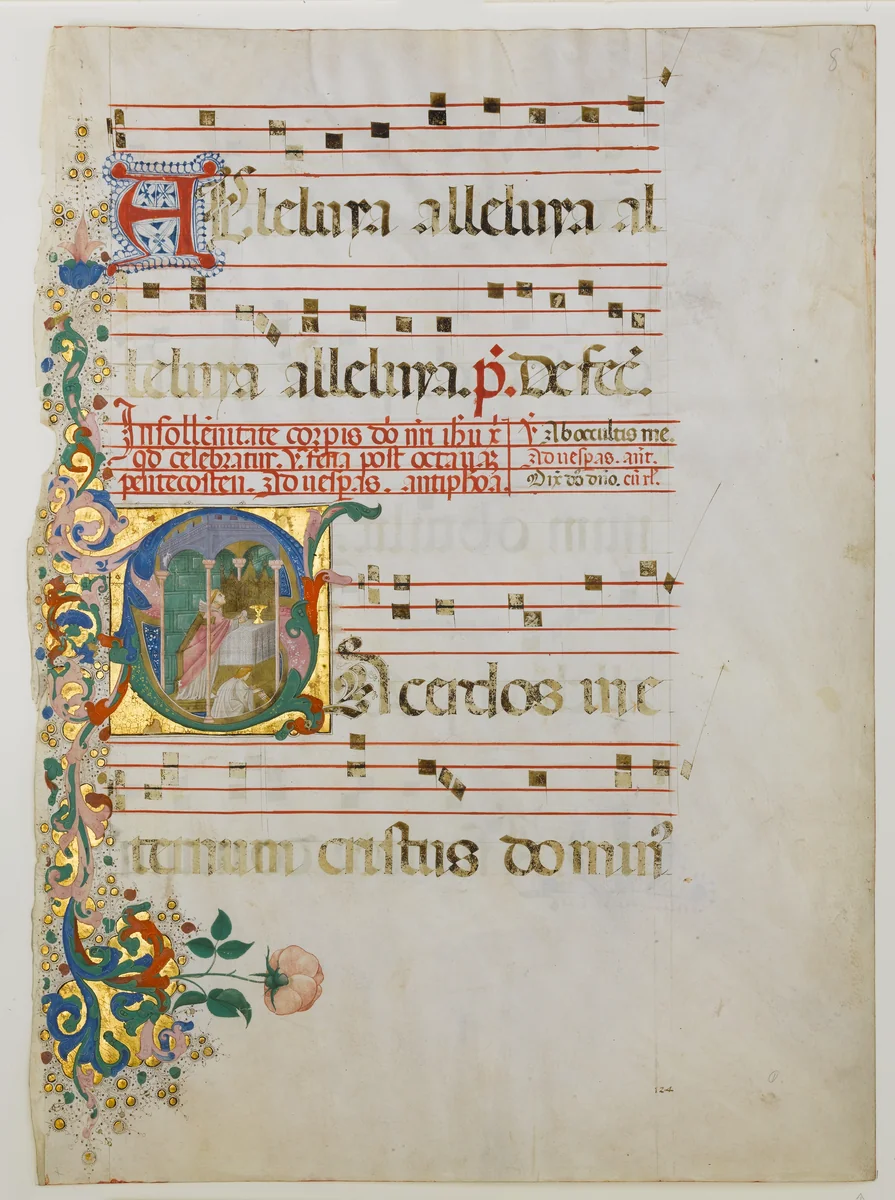 AEleluya alleluya al
leluya alleluya. p̄. De fec̄.
In sollēnitate corpis dn̄i nr̄i ih̄u x̄
qd̄ celebratur. v. feria post octauas
pentecosten. Ad uesp̄as. antiphoā.
℣ Ab occultis me.
Ad uesp̄as. ant̄.
Dix̄ dn̄s dn̄o. cū rl̄.
SAcerdos in e
ternum cristus domin⁹
124